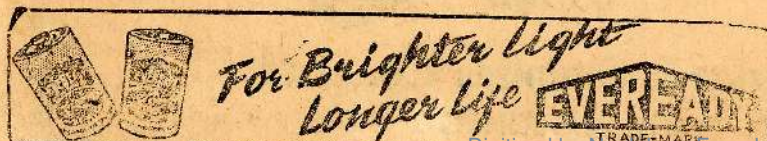 For Brighter Light
Longer Life
EVEREADY
TRADE-MARK